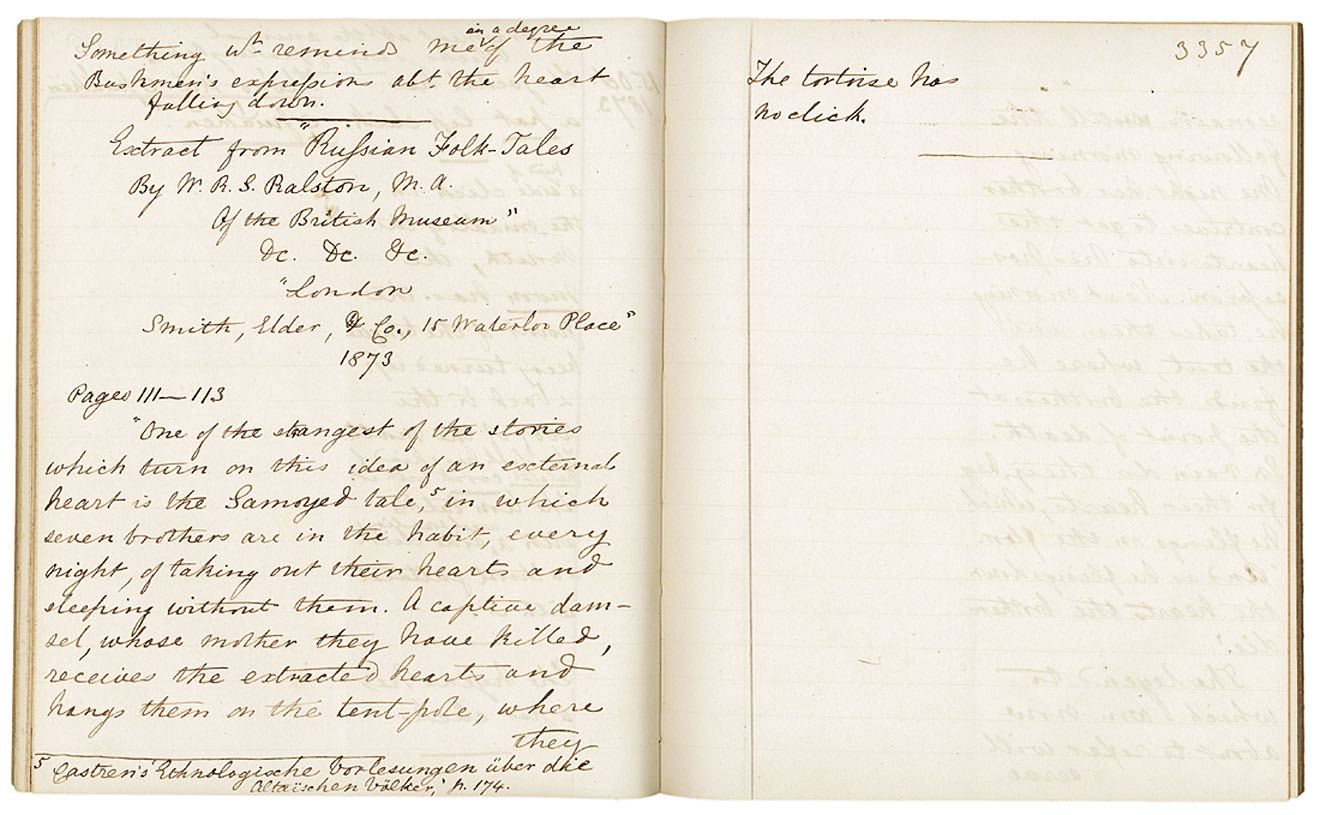 Something wh. reminds me in a degree of the
Bushmen's expressions abt. the heart
falling down.
Extract from "Russian Folk-Tales
By W. R. S. Ralston, M. A.
Of the British Museum"
&c. &c. &c.
"London
Smith, Elder, & Co., 15 Waterloo Place"
1873
Pages 111—113
"One of the strangest of the stories
which turn on this idea of an external
heart is the Samoyed tale,5 in which
seven brothers are in the habit, every
night, of taking out their hearts and
sleeping without them. A captive dam-
sel, whose mother they have killed,
receives the extracted hearts and
hangs them on the tent-pole, where
they
5 Castren's 'Ethnologische Vorlesungen über die
Altaischen Völker,' p. 174.
3357
The tortoise has
no click.